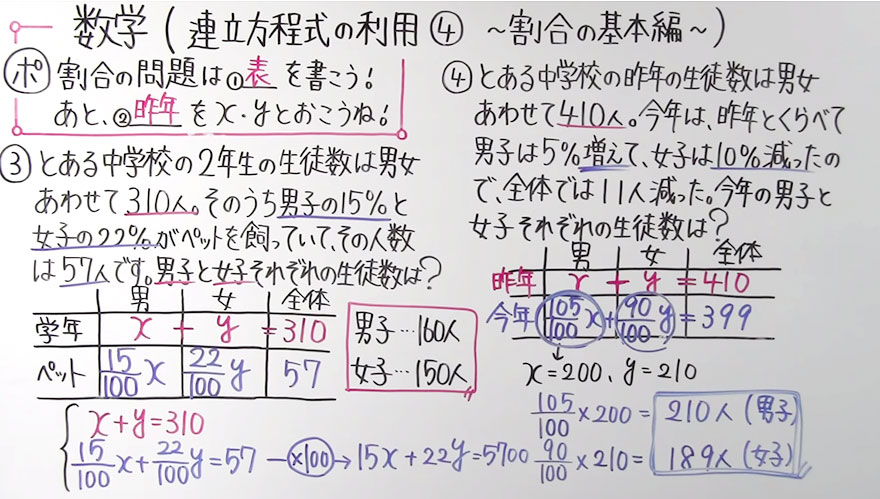 数学(連立方程式の利用④ ~割合の基本編~)
ポ 割合の問題は①表を書こう!
あと、②昨年をx・yとおこうね!
③とある中学校の2年生の生徒数は男女
あわせて310人。そのうち男子の15%と
女子の22%がペットを飼っていて、その人数
は57人です。男子と女子それぞれの生徒数は?
男 女 全体
学年 x + y = 310
ペット 15/100 x 22/100 y 57
男子…160人
女子…150人
x+y=310
15/100 x + 22/100 y = 57 —×100→ 15x+22y=5700
④とある中学校の昨年の生徒数は男女
あわせて410人。今年は、昨年とくらべて
男子は5%増えて、女子は10%減ったの
で、全体では11人減った。今年の男子と
女子それぞれの生徒数は?
男 女 全体
昨年 x + y = 410
今年 105/100 x + 90/100 y = 399
↓
x=200、y=210
105/100 ×200= 210人(男子)
90/100 ×210= 189人(女子)